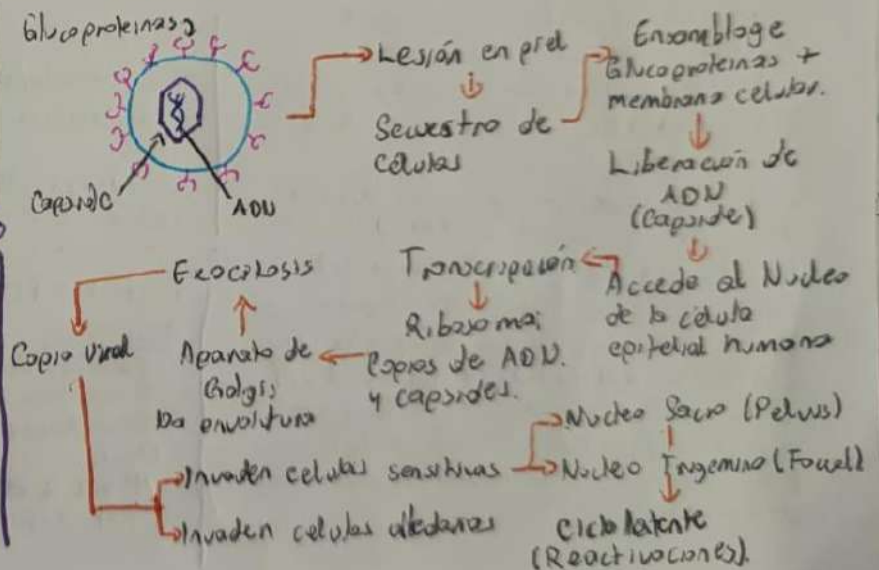 Glucoproteinas
Capside
ADN
Lesión en piel
Secuestro de
células
Ensamblage
Glucoproteinas +
membrana celular.
Liberación de
ADN
(Capside)
Accede al Nucleo
de la célula
epitelial humana
Transcripación
Ribosomas
Copias de ADN.
y capsides.
Aparato de
Golgi:
Da envoltura
Exocitosis
Copia viral
Invaden celulas sensitivas
Invaden celulas aledanas
Nucleo Sacro (Pelvis)
Nucleo Trigemino (Facial)
Ciclo latente
(Reactivaciones).